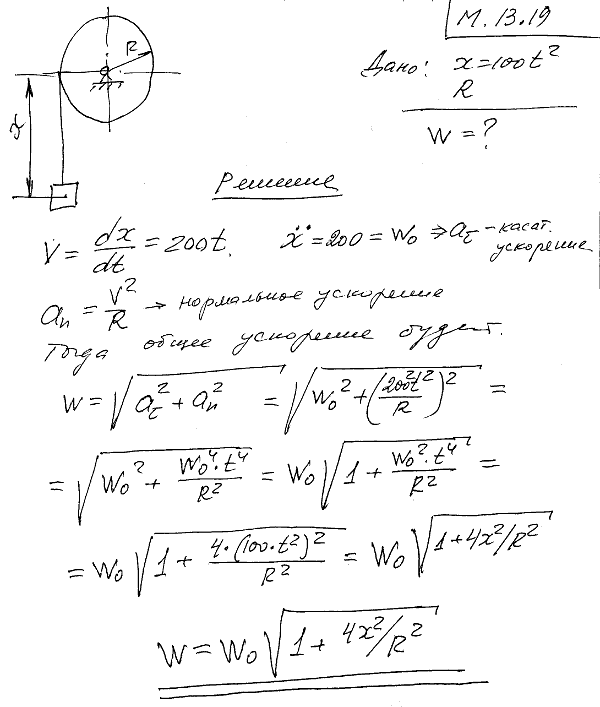 М. 13.19
Дано: x=100t²
R
W=?
R
x
Решение
V = dx/dt = 200t. ẍ = 200 = W₀ ⇒ a_τ - касат. ускорение
a_n = V²/R → нормальное ускорение
Тогда общее ускорение будет.
W = √(a_τ² + a_n²) = √(W₀² + (200²t²/R)²) =
= √(W₀² + W₀⁴·t⁴/R²) = W₀√(1 + W₀²·t⁴/R²) =
= W₀√(1 + 4·(100·t²)²/R²) = W₀√(1+4x²/R²)
W = W₀√(1+4x²/R²)